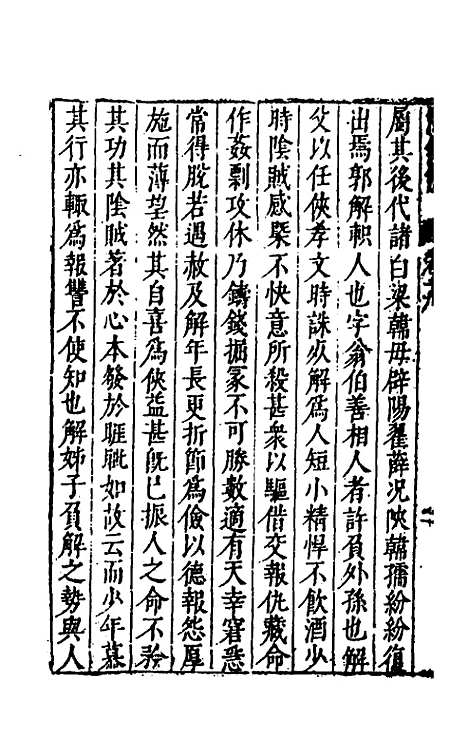 屬其後代諸白梁韓毋辟陽翟薛况陝韓孺紛紛復
出焉郭解軹人也字翁伯善相人者許負外孫也解
父以任俠孝文時誅死解爲人短小精悍不飲酒少
時陰賊感槩不快意所殺甚衆以驅借交報仇藏命
作姦剽攻休乃鑄錢掘冢不可勝數適有天幸窘急
常得脫若遇赦及解年長更折節爲儉以德報怨厚
施而薄望然其自喜爲俠益甚旣已振人之命不矜
其功其陰賊著於心本發於睚眦如故云而少年慕
其行亦輒爲報讐不使知也解姊子負解之勢與人